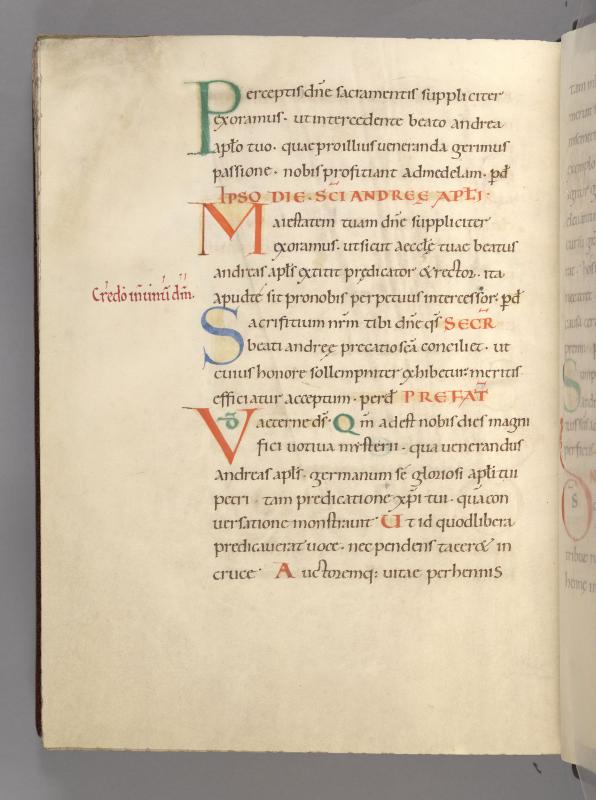 Perceptis dn̄e sacramentis suppliciter
exoramus. ut intercedente beato andrea
ap̄lo tuo. quae pro illius ueneranda gerimus
passione. nobis profitiant ad medelam. p̄d
IPSO DIE. SC̄I ANDREĘ AP̄LI.
Maiestatem tuam dn̄e suppliciter
exoramus. ut sicut aecclę tuae beatus
andreas ap̄ls extitit prędicator & rector. ita
apud te sit pro nobis perpetuus intercessor. p̄d
Credo in unū dm̄.
Sacrifitium nr̄m tibi dn̄e qs̄ SECR̄
beati andreę precatio sc̄a conciliet. ut
cuius honore sollempniter exhibetur meritis
efficiatur acceptum. per d PREFAT
VD aeterne ds̄. Qm̄ adest nobis dies magni
fici uotiua mysterii. qua uenerandus
andreas ap̄ls. germanum se gloriosi ap̄li tui
petri tam predicatione xp̄i tui. qua con
uersatione monstrauit Ut id quod libera
predicauerat uoce. nec pendens tacer& in
cruce. Auctoremq: uitae perhennis